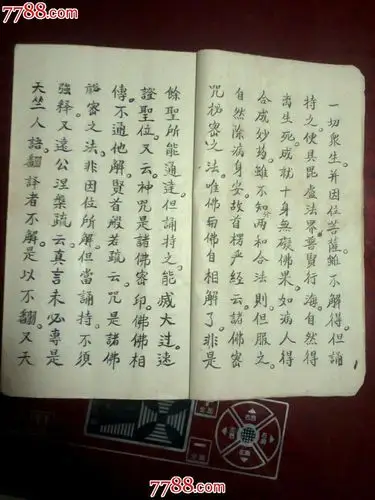 7788.com
一切衆生。并因位菩薩。雖不解得但誦
持之便具毘盧法界。普賢行海。自然得
离生死。成就十身無礙佛果。如病人得
合成妙药。雖不知分兩和合法則。但服之。
自然除病身安。故首楞严经云。諸佛密
咒秘密之法。唯佛與佛自相解了。非是
餘聖所能通達。但誦持之能滅大过。速
證聖位。又云。神咒是諸佛密印。佛佛相
傳。不通他解。賢首般若疏云。咒是諸佛
秘密之法。非因位所解。但當誦持。不須
強释。又遠公涅槃疏云。真言未必專是
天竺人語。翻譯者不解。是以不翻。又天
7788.com